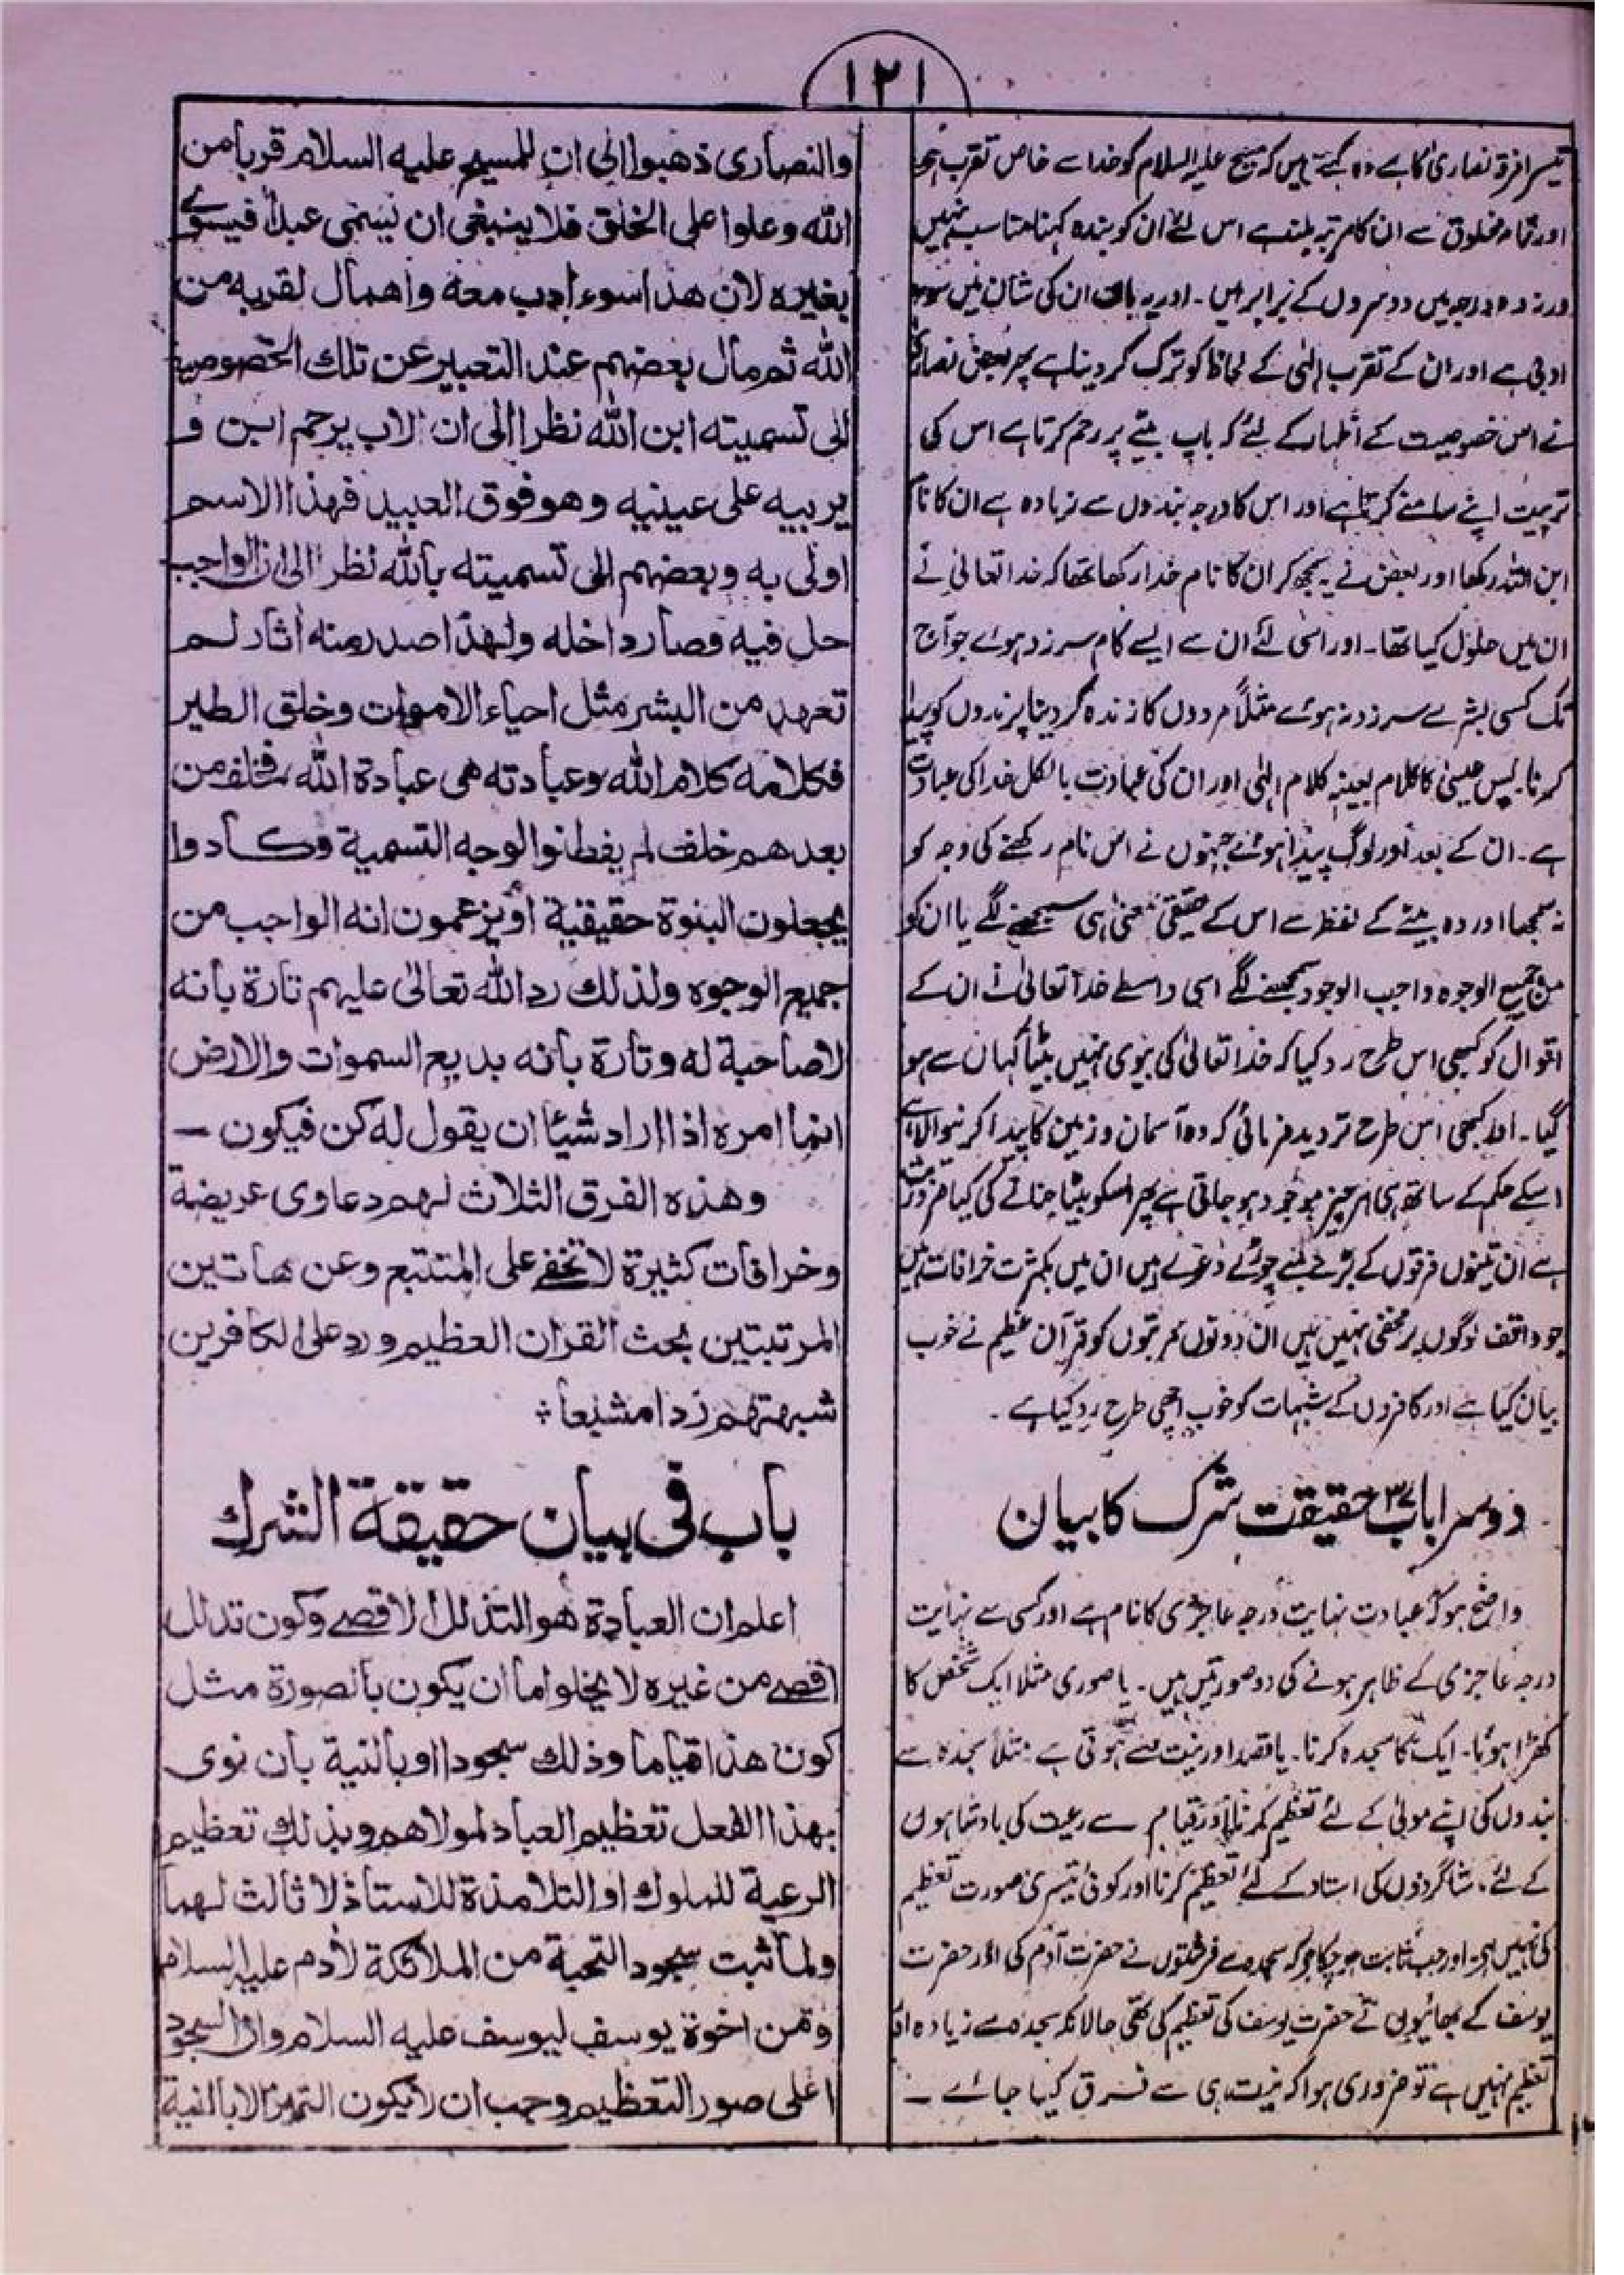 ۱۲۱
تیسرا فرقہ نصاریٰ کا ہے وہ کہتے ہیں کہ مسیح علیہ السلام کو خدا سے خاص تقرب ہے
اور تمام مخلوق سے ان کا مرتبہ بلند ہے اس لئے ان کو بندہ کہنا مناسب نہیں
ورنہ وہ درجہ میں دوسروں کے برابر ہیں۔ اور یہ بات ان کی شان میں سوء
ادبی ہے اور ان کے تقرب الٰہی کے لحاظ کو ترک کر دینا ہے پھر بعض نصاریٰ
نے اس خصوصیت کے اظہار کے لئے کہ باپ بیٹے پر رحم کرتا ہے اس کی
تربیت اپنے سامنے کرتا ہے اور اس کا درجہ بندوں سے زیادہ ہے ان کا نام
ابن اللہ رکھا اور بعض نے یہ سمجھ کر ان کا نام خدا رکھا تھا کہ خدا تعالیٰ نے
ان میں حلول کیا تھا۔ اور اسی لئے ان سے ایسے کام سرزد ہوئے جو آج
تک کسی بشر سے سرزد نہ ہوئے مثلاً مردوں کا زندہ کر دینا پرندوں کو پیدا
کرنا۔ پس عیسیٰ کا کلام بعینہ کلام الٰہی اور ان کی عبادت بالکل خدا کی عبادت
ہے۔ ان کے بعد اور لوگ پیدا ہوئے جنہوں نے اس نام رکھنے کی وجہ کو
نہ سمجھا اور وہ بیٹے کے لفظ سے اس کے حقیقی معنی ہی سمجھنے لگے یا ان کو
من جمیع الوجوہ واجب الوجود سمجھنے لگے اسی واسطے خدا تعالیٰ نے ان کے
اقوال کو کبھی اس طرح رد کیا کہ خدا تعالیٰ کی بیوی نہیں بیٹا کہاں سے ہو
گیا۔ اور کبھی اس طرح تردید فرمائی کہ وہ آسمان و زمین کا پیدا کرنیوالا ہے
اسکے حکم کے ساتھ ہی ہر چیز موجود ہو جاتی ہے پھر اسکو بیٹا بنانے کی کیا ضرورت
ہے ان تینوں فرقوں کے بڑے لمبے چوڑے دعوے ہیں ان میں بکثرت خرافات ہیں
جو واقف لوگوں پر مخفی نہیں ہیں ان دونوں مرتبوں کو قرآن عظیم نے خوب
بیان کیا ہے اور کافروں کے شبہات کو خوب اچھی طرح رد کیا ہے۔
دوسرا باب ۳۷ حقیقت شرک کا بیان
واضح ہو کہ عبادت نہایت درجہ عاجزی کا نام ہے اور کسی سے نہایت
درجہ عاجزی کے ظاہر ہونے کی دو صورتیں ہیں۔ یا صوری مثلا ایک شخص کا
کھڑا ہونا۔ ایک کا سجدہ کرنا۔ یا قصد اور نیت سے ہوتی ہے مثلاً سجدہ سے
بندوں کی اپنے مولیٰ کے لئے تعظیم کرنا اور قیام سے رعیت کی بادشاہوں
کے لئے، شاگردوں کی استاد کے لئے تعظیم کرنا اور کوئی تیسری صورت تعظیم
کی نہیں ہے اور جب ثابت ہو چکا ہو کہ سجدہ سے فرشتوں نے حضرت آدم کی اور حضرت
یوسف کے بھائیوں نے حضرت یوسف کی تعظیم کی تھی حالانکہ سجدہ سے زیادہ اور
تعظیم نہیں ہے تو ضروری ہوا کہ نیت ہی سے فرق کیا جائے۔
والنصاری ذهبوا الی ان للمسیح علیه السلام قربا من
الله وعلوا علی الخلق فلا ینبغی ان یسمی عبدا فیسوی
بغیره لان هذا سوء ادب معه واهمال لقربه من
الله ثم مال بعضهم عند التعبیر عن تلك الخصوصیة
الی تسمیته ابن الله نظرا الی ان الاب یرحم ابن و
یربیه علی عینیه وهو فوق العبید فهذا الاسم
اولی به وبعضهم الی تسمیته بالله نظرا الی ان الواجب
حل فیه وصار داخله ولهذا صدر منه اثار لم
تعهد من البشر مثل احیاء الاموات وخلق الطیر
فکلامه کلام الله وعبادته هی عبادة الله فخلف من
بعدهم خلف لم یفطنوا لوجه التسمیة وکادوا
یجعلون البنوة حقیقیة او یزعمون انه الواجب من
جمیع الوجوه ولذلك رد الله تعالیٰ علیهم تارة بانه
لا صاحبة له وتارة بانه بدیع السموات والارض
انما امره اذا اراد شیئا ان یقول له کن فیکون —
وهذه الفرق الثلاث لهم دعاوی عریضة
وخرافات کثیرة لا تخفی علی المتتبع وعن هاتین
المرتبتین بحث القران العظیم ورد علی الکافرین
شبهتهم ردا مشبعا ؞
باب فی بیان حقیقة الشرك
اعلم ان العبادة هو التذلل الاقصے وکون تذلل
اقصے من غیره لا یخلو اما ان یکون بالصورة مثل
کون هذا قیاما وذلك سجودا او بالنیة بان نوی
بهذا الفعل تعظیم العباد لمولاهم وبذلك تعظیم
الرعیة للملوك او التلامذة للاستاذ لا ثالث لهما
ولما ثبت سجود التحیة من الملائکة لادم علیه السلام
ومن اخوة یوسف لیوسف علیه السلام وان السجود
اعلی صور التعظیم وجب ان لا یکون التمیز الا بالنیة